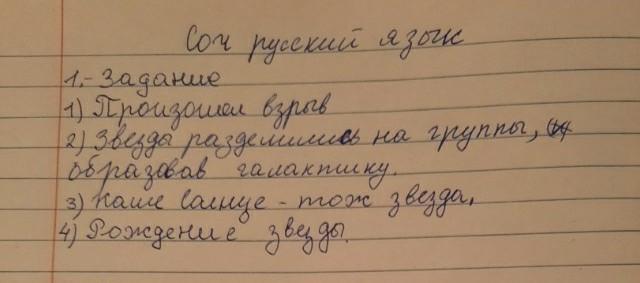 Соч русский язык
1.- Задание
1) Произошел взрыв
2) Звезды разделились на группы,
образовав галактику.
3) Наше Солнце - тож звезда.
4) Рождение звезды.